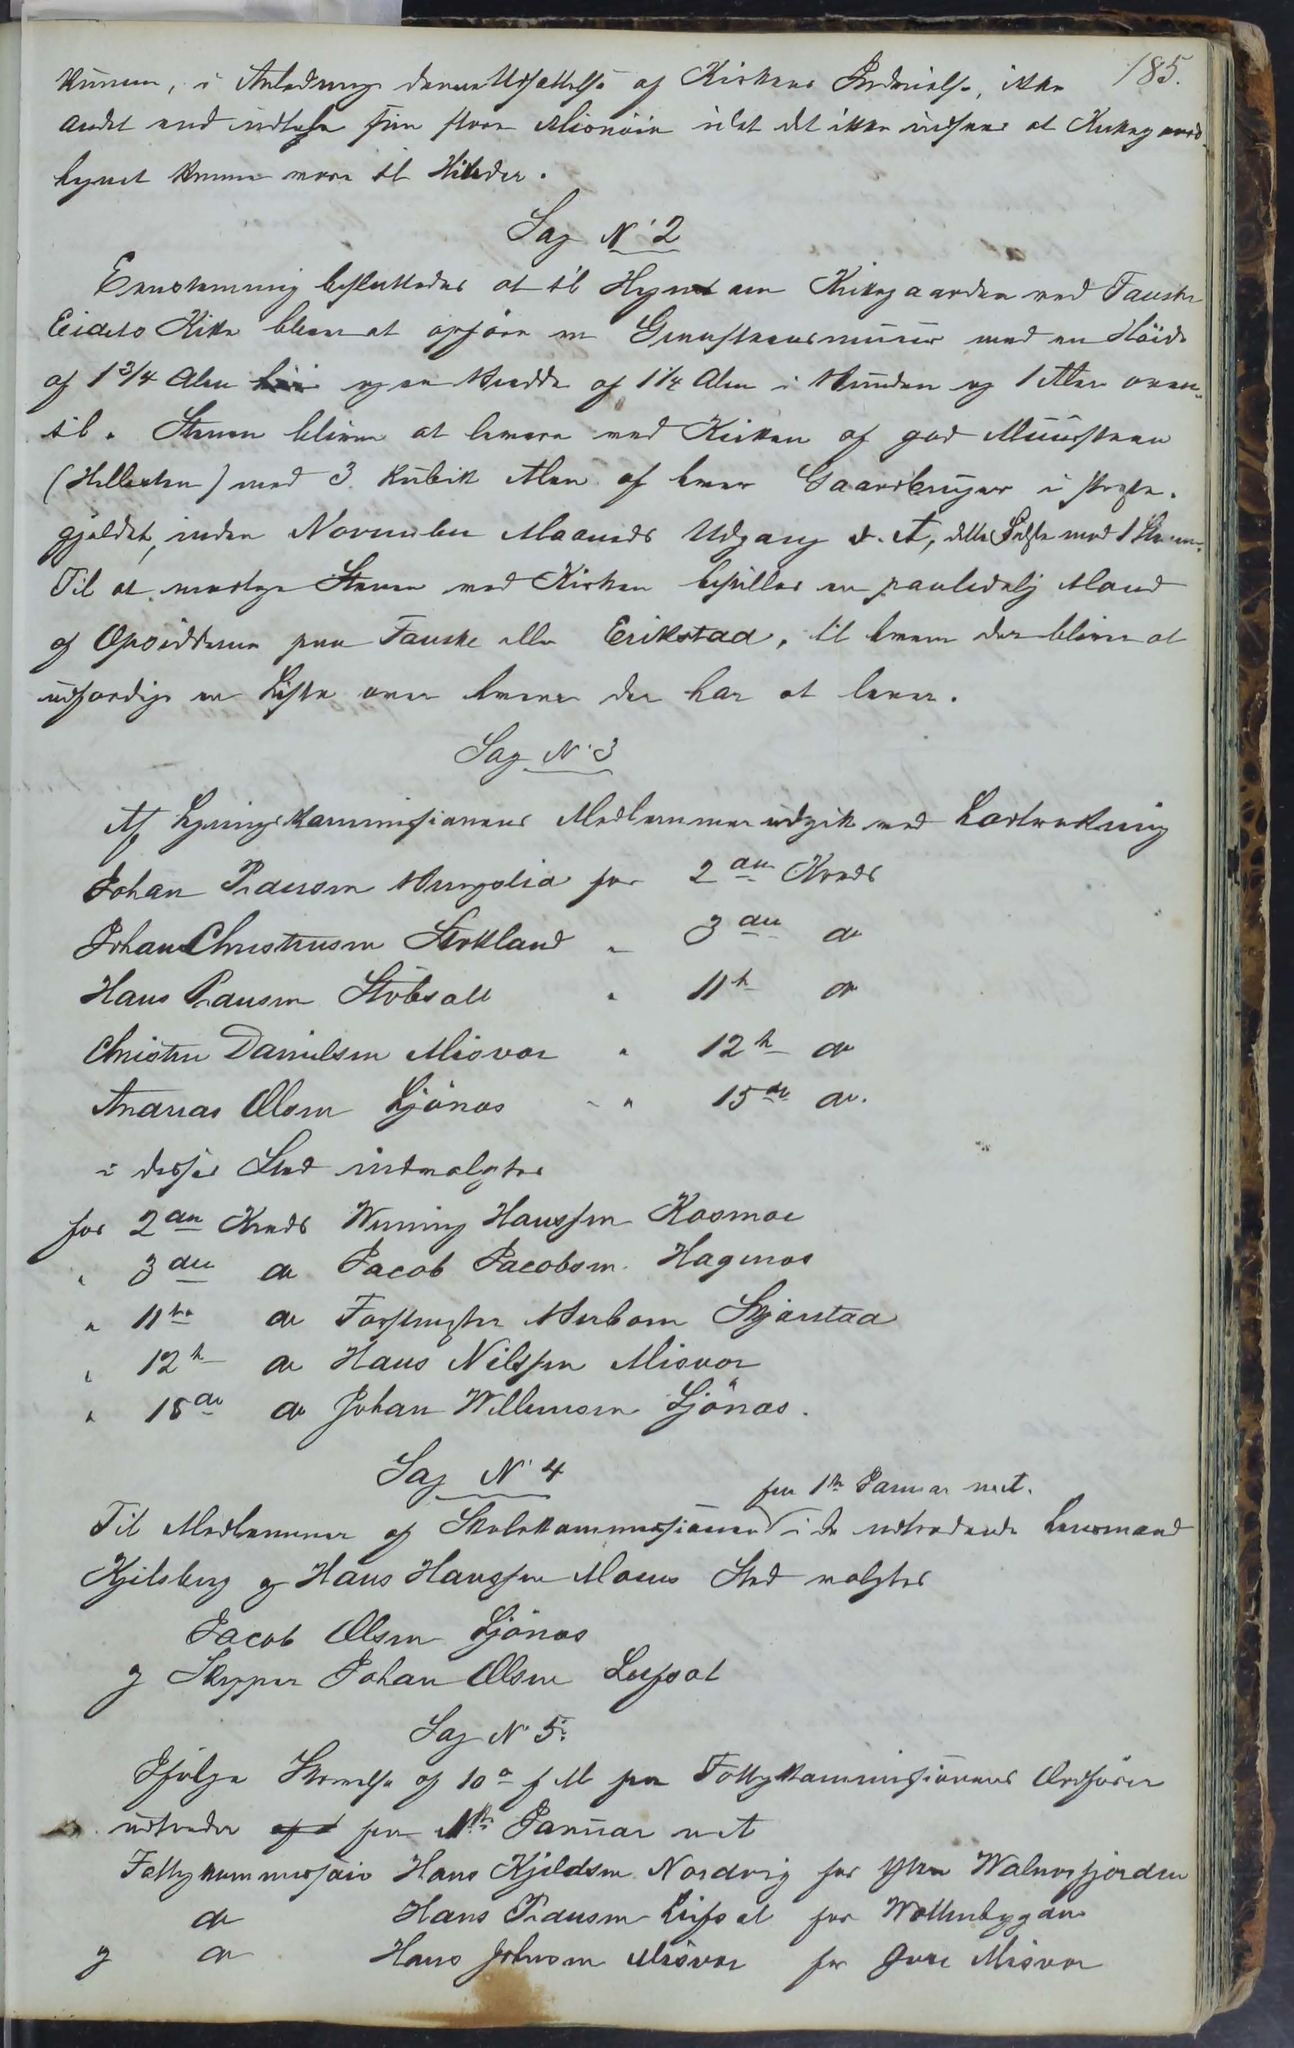 185.
Kunne, i Anledning denne Udsættelse af Kirkens Indvielse, ikke
andet end indtage sin store Misnöie idet det ikke indsees at Kirkegaards
hegnet kunne være til Hinder.
Sag N. 2
Eenstemmig besluttedes at til Hegnet om Kirkegaarden ved Fauske
Eidets Kirke bliver at opföre en Graasteensmuur med en Höide
af 1 3/4 Alen og en Bredde af 1 1/4 Alen i Bunden og 1 Alen oven-
til. Stenen bliver at levere ved Kirken af god Muursteen
(Hellesten) med 3 Kubik Alen af hver Gaardbruger i Præste-
gjeldet, inden November Maaneds Udgang d. A, dette Sidste mod 1 Stemme.
Til at modtage Stenen ved Kirken bestilles en paalidelig Mand
af Opsidderne paa Fauske eller Erikstad, til hvem der bliver at
udfærdige en Liste over hvem der har at levere.
Sag N. 3
Af Ligningskommissionens Medlemmer udgik ved Lodtrækning
Johan Pedersen Bringslid for 2den Kreds
Johan Christensen Stokland " 3die do
Hans Pedersen " 11te do
Christen Danielsen Misvær " 12te do
Andreas Olsen Ljönæs " 15de do.
i disses Sted indvalgtes
for 2den Kreds Henning Hanssen Kosmoe
" 3die do Jacob Jacobsen Hagenæs
" 11te do Forstmester Skjærstad
" 12te do Hans Nilssen Misvær
" 15de do Johan Willumsen Ljönæs.
Sag N. 4
fra 1ste Januar næst.
Til Medlemmer af Skolekommissionen i de udtrædende Lensmand
Kjelsberg og Hans Hanssen Moens Sted valgtes
Jacob Olsen Ljönæs
og Skipper Johan Olsen Leifset
Sag N. 5.
Ifölge Skrivelse af 10de f. M. fra Fattigkommissionens Ordförer
udtræder fra 1ste Januar næst
Fattigkommissair Hans Kjeldsen Nordvig for Ytre Walnesfjorden
do Hans Pedersen Leifset for Wattenbygden
og do Hans Johnsen Misvær for övre Misvær